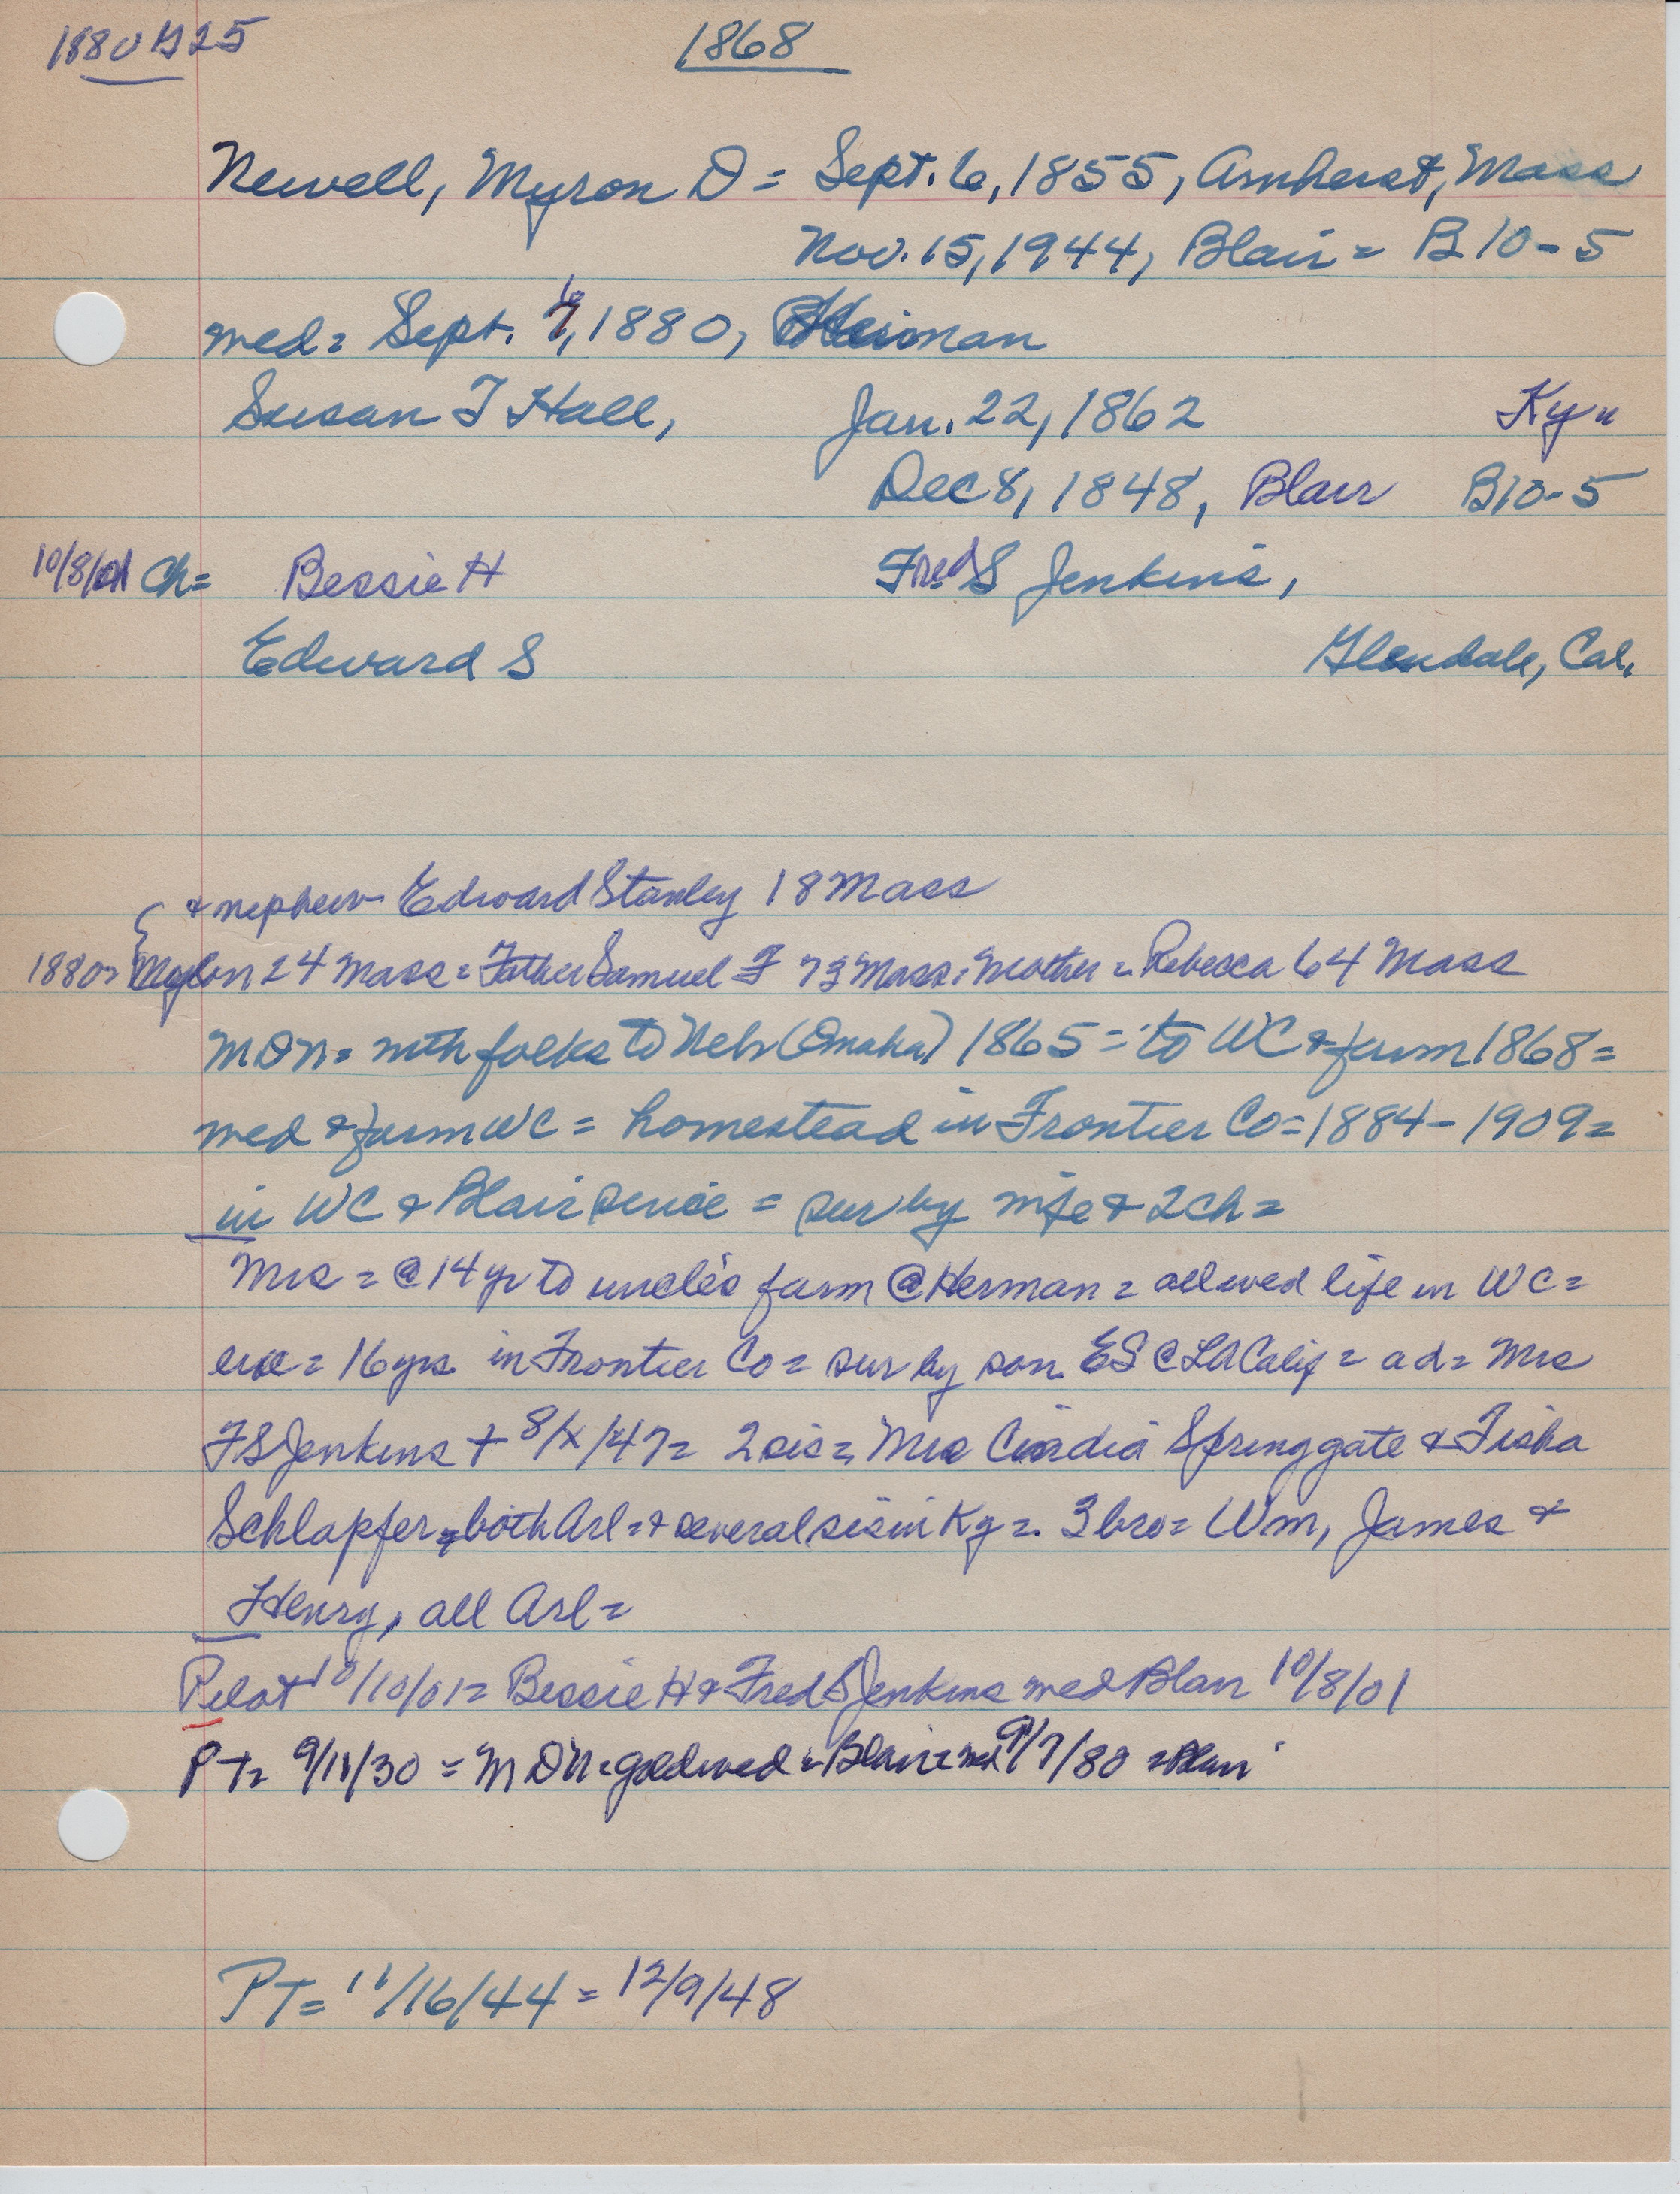 1880 G25
1868
Newell, Myron D = Sept. 6, 1855, Amherst, Mass
Nov. 15, 1944, Blair = B 10-5
med = Sept. 6, 1880, Herman
Susan T Hall, Jan. 22, 1862 Ky =
Dec 8, 1848, Blair B10-5
10/8/01 Ch = Bessie H Fred S Jenkins,
Edward S Glendale, Cal.
& nephew Edward Stanley 18 Mass
1880 = Mylon 24 Mass = Father Samuel F 73 Mass = Mother = Rebecca 64 Mass
MDN = with folks to Neb (Omaha) 1865 = to WC & farm 1868 =
med & farm WC = homestead in Frontier Co = 1884 - 1909 =
in WC & Blair since = sur by wife & 2 ch =
Mrs = @ 14 yr to uncle's farm @ Herman = all wed life in WC =
16 yrs in Frontier Co = sur by son ES @ LA Calif = ad = Mrs
FS Jenkins + 8/x/47 = 2 sis = Mrs Springgate & Tisha
Schlapfer, both Arl = & several sis in Ky = 3 bro = Wm, James &
Henry, all Arl =
Pilot 10/10/01 = Bessie H & Fred S Jenkins med Blair 10/8/01
PT = 9/11/30 = MDN = gold wed = Blair = med 9/7/80 = Blair
PT = 11/16/44 = 12/9/48